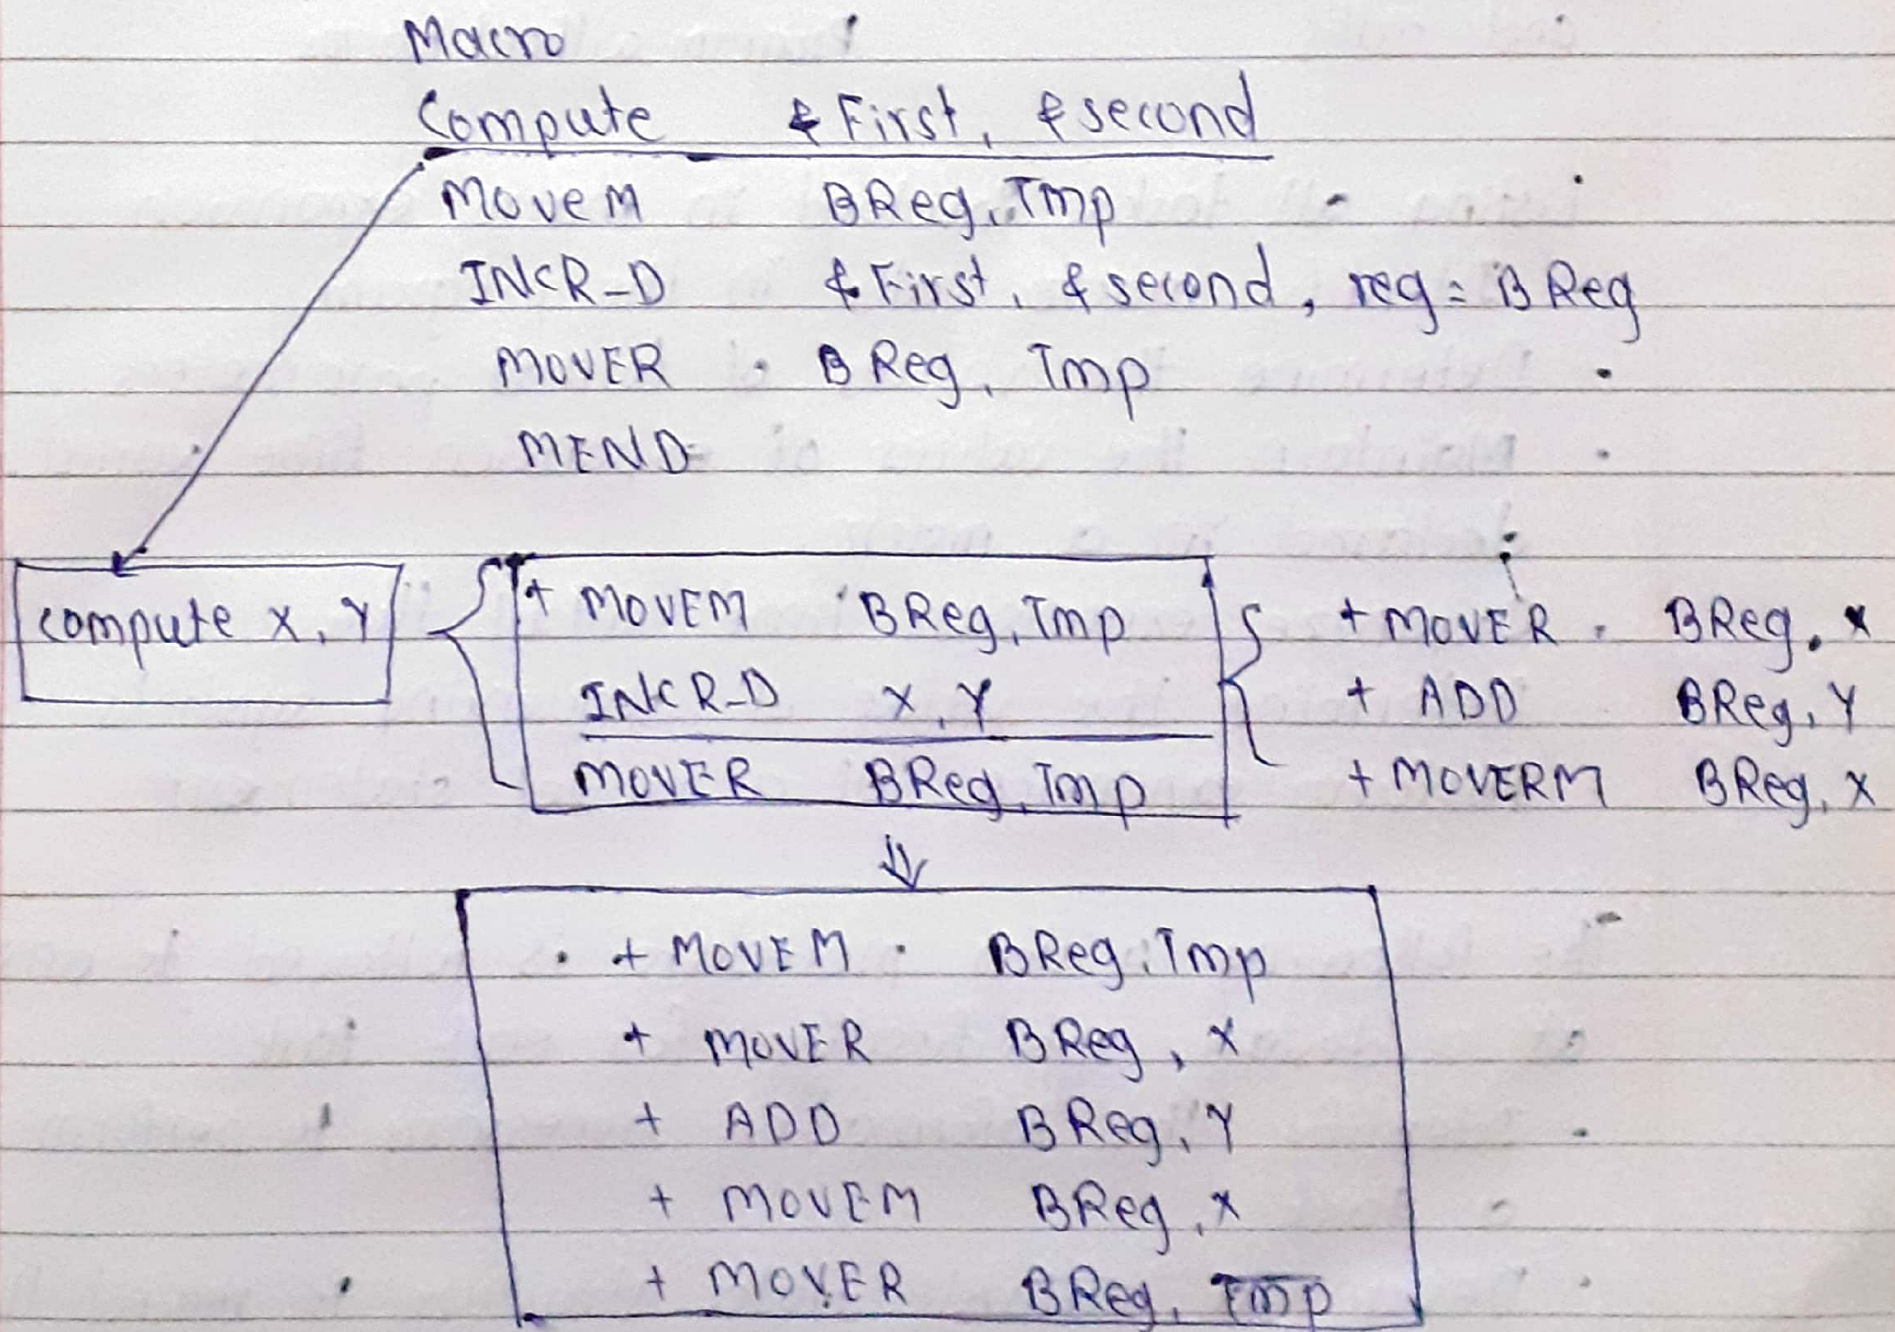 Macro
Compute &First, &second
Movem BReg, Tmp
INCR_D &First, &second, reg = BReg
MOVER BReg, Tmp
MEND
compute X, Y
+ MOVEM BReg, Tmp
INCR_D X, Y
MOVER BReg, Tmp
+ MOVER BReg, X
+ ADD BReg, Y
+ MOVERM BReg, X
+ MOVEM BReg, Tmp
+ MOVER BReg, X
+ ADD BReg, Y
+ MOVEM BReg, X
+ MOVER BReg, Tmp